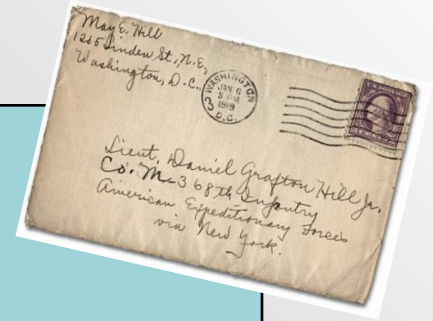 May E. Hill
1205 Linden St., N.E,
Washington, D.C.
WASHINGTON
JAN 6
5 PM
1919
D.C.
Lieut. Daniel Grafton Hill Jr.
Co. M-368th Infantry
American Expeditionary Forces
via New York.